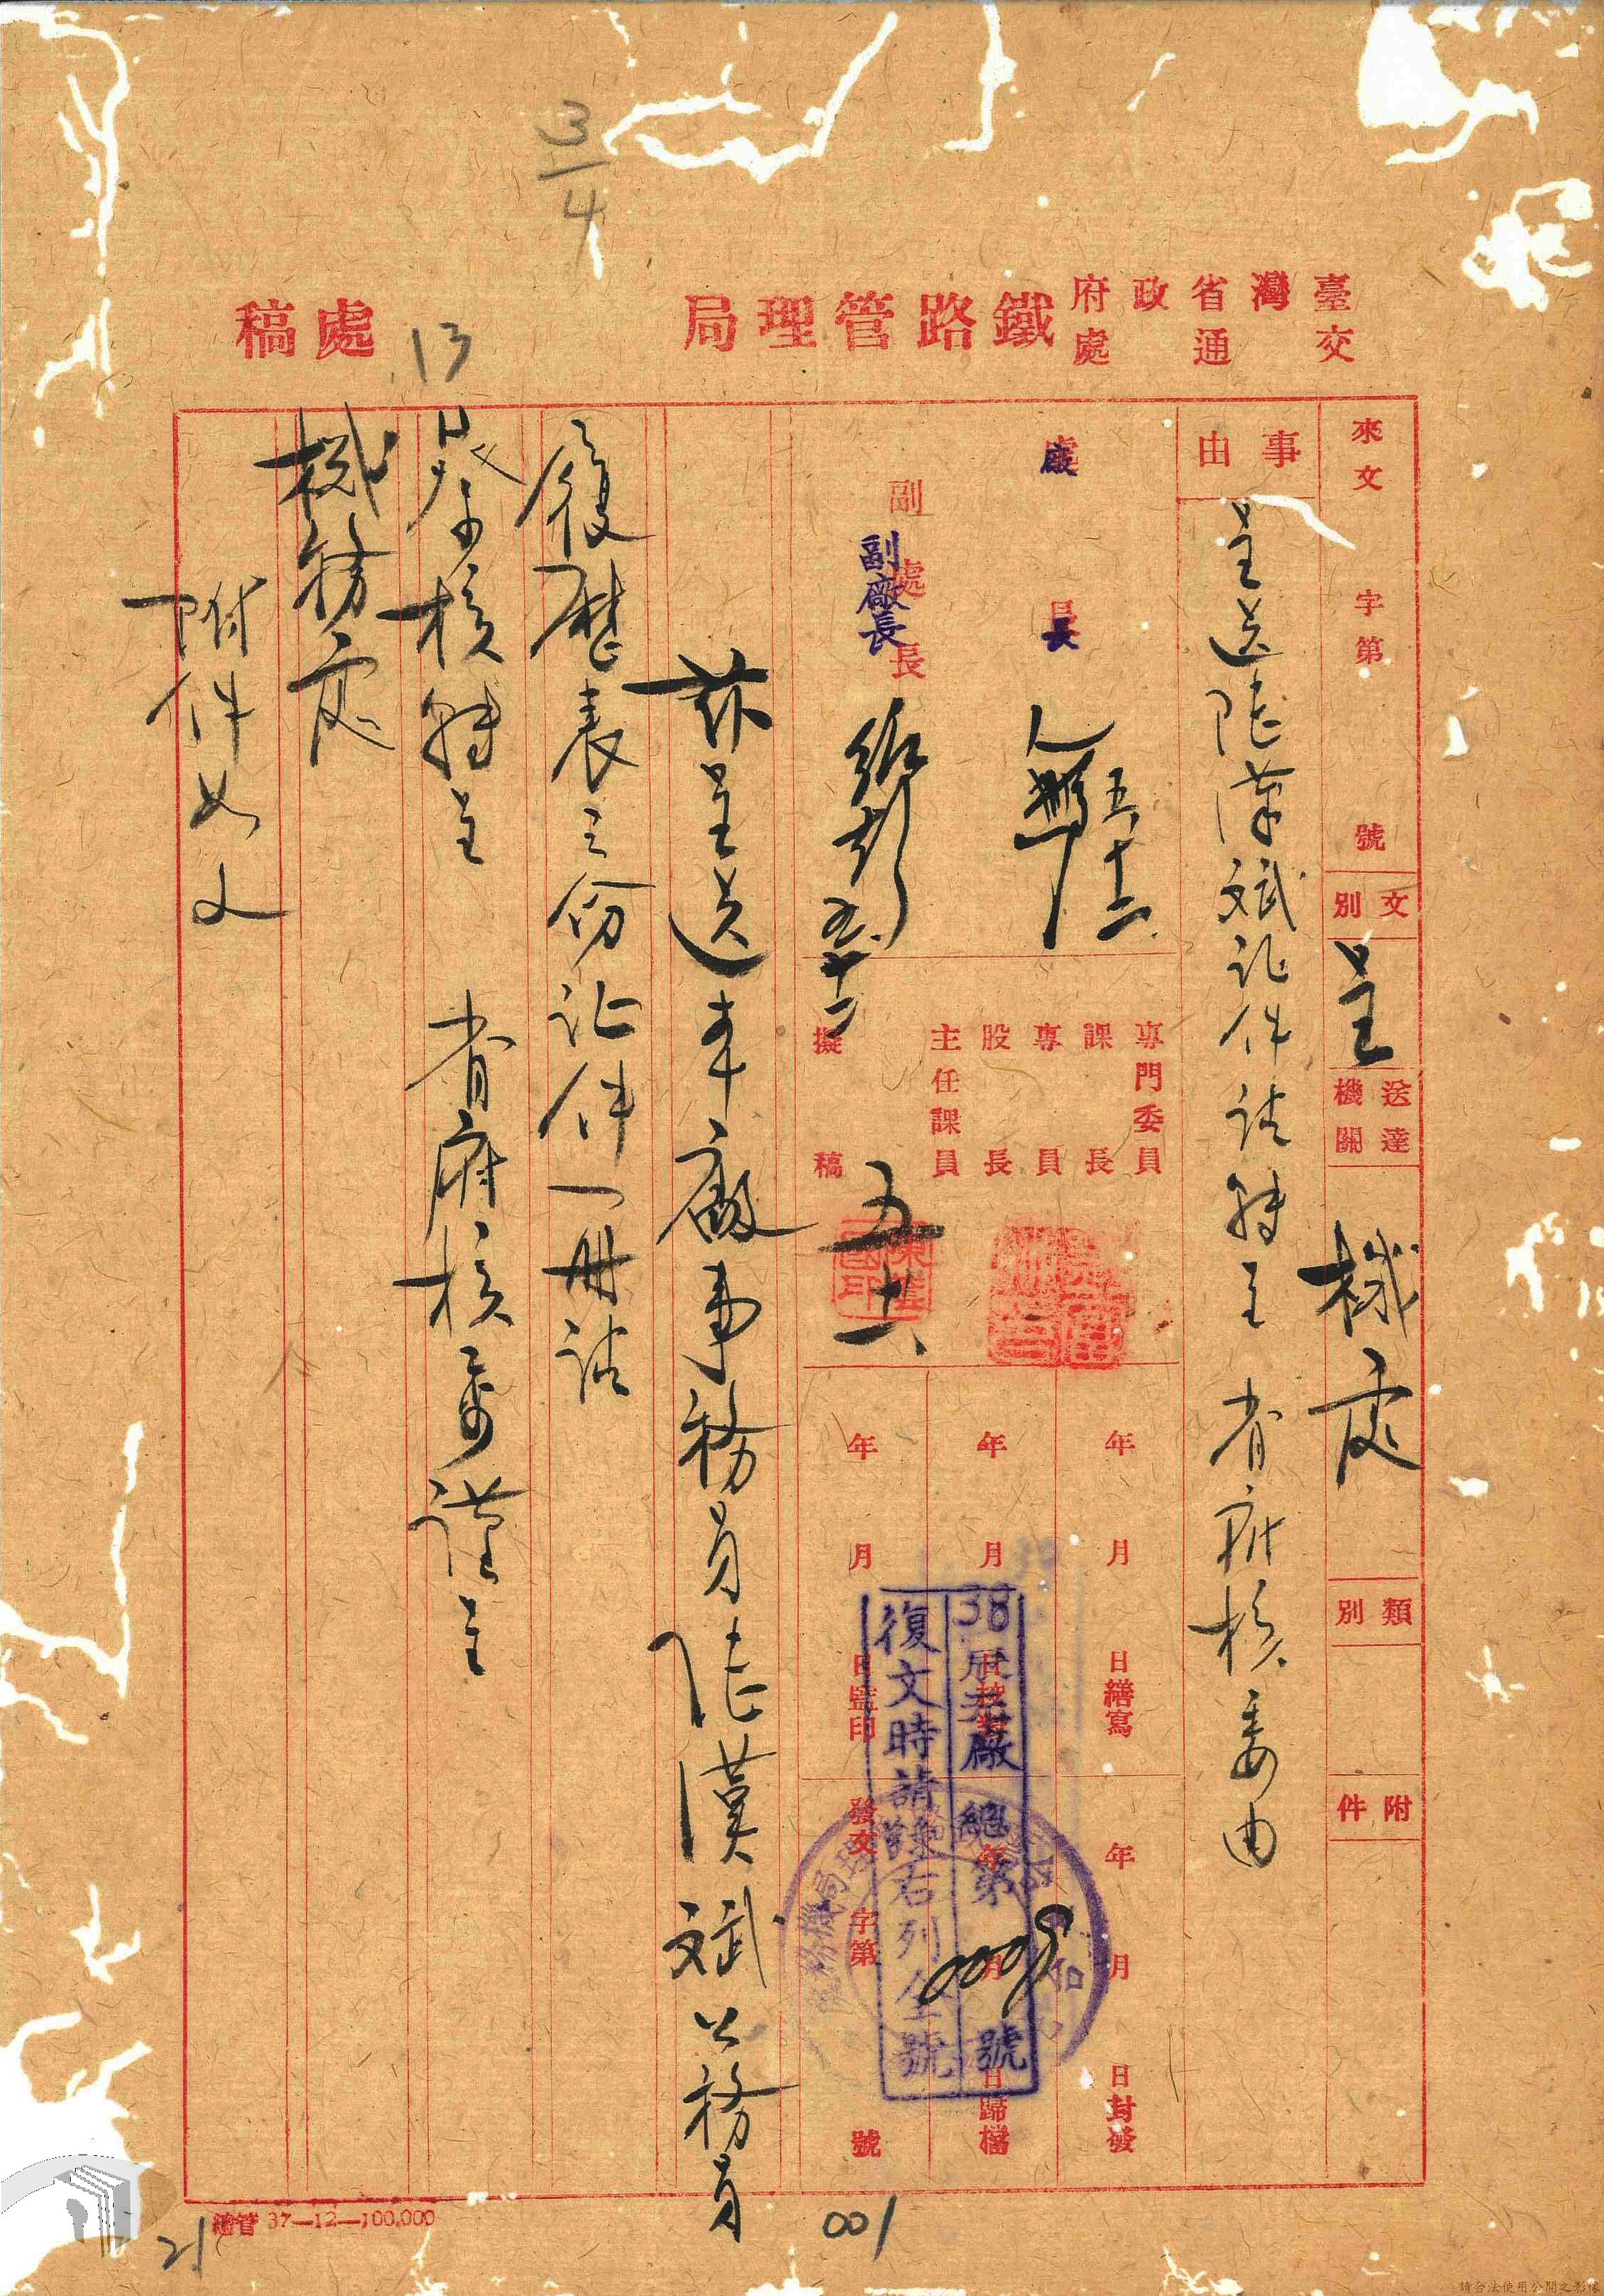 3/4
臺灣省政府
交通處
鐵路管理局
處稿
13
來文 字第 號
文別
呈
送達機關
機處
類別
附件
事由
呈送陸漢斌証件請轉呈 省府核委由
廠長
五、十二
副處長
副廠長
五、十二
專門委員
課長
專員
股長
主任課員
擬稿
五、十一、
年 月 日繕寫
年 月 日校對
年 月 日監印
年 月 日封發
年 月 日歸檔
發文 字第 號
38 廠 總第0009號
復文時請 右列全號
茲呈送本廠事務員陸漢斌公務員
履歷表三份証件一册請
詧核轉呈 省府核委謹呈
機務處
附件如文
總管 37—12—100,000
001
21
請合法使用公開之影像